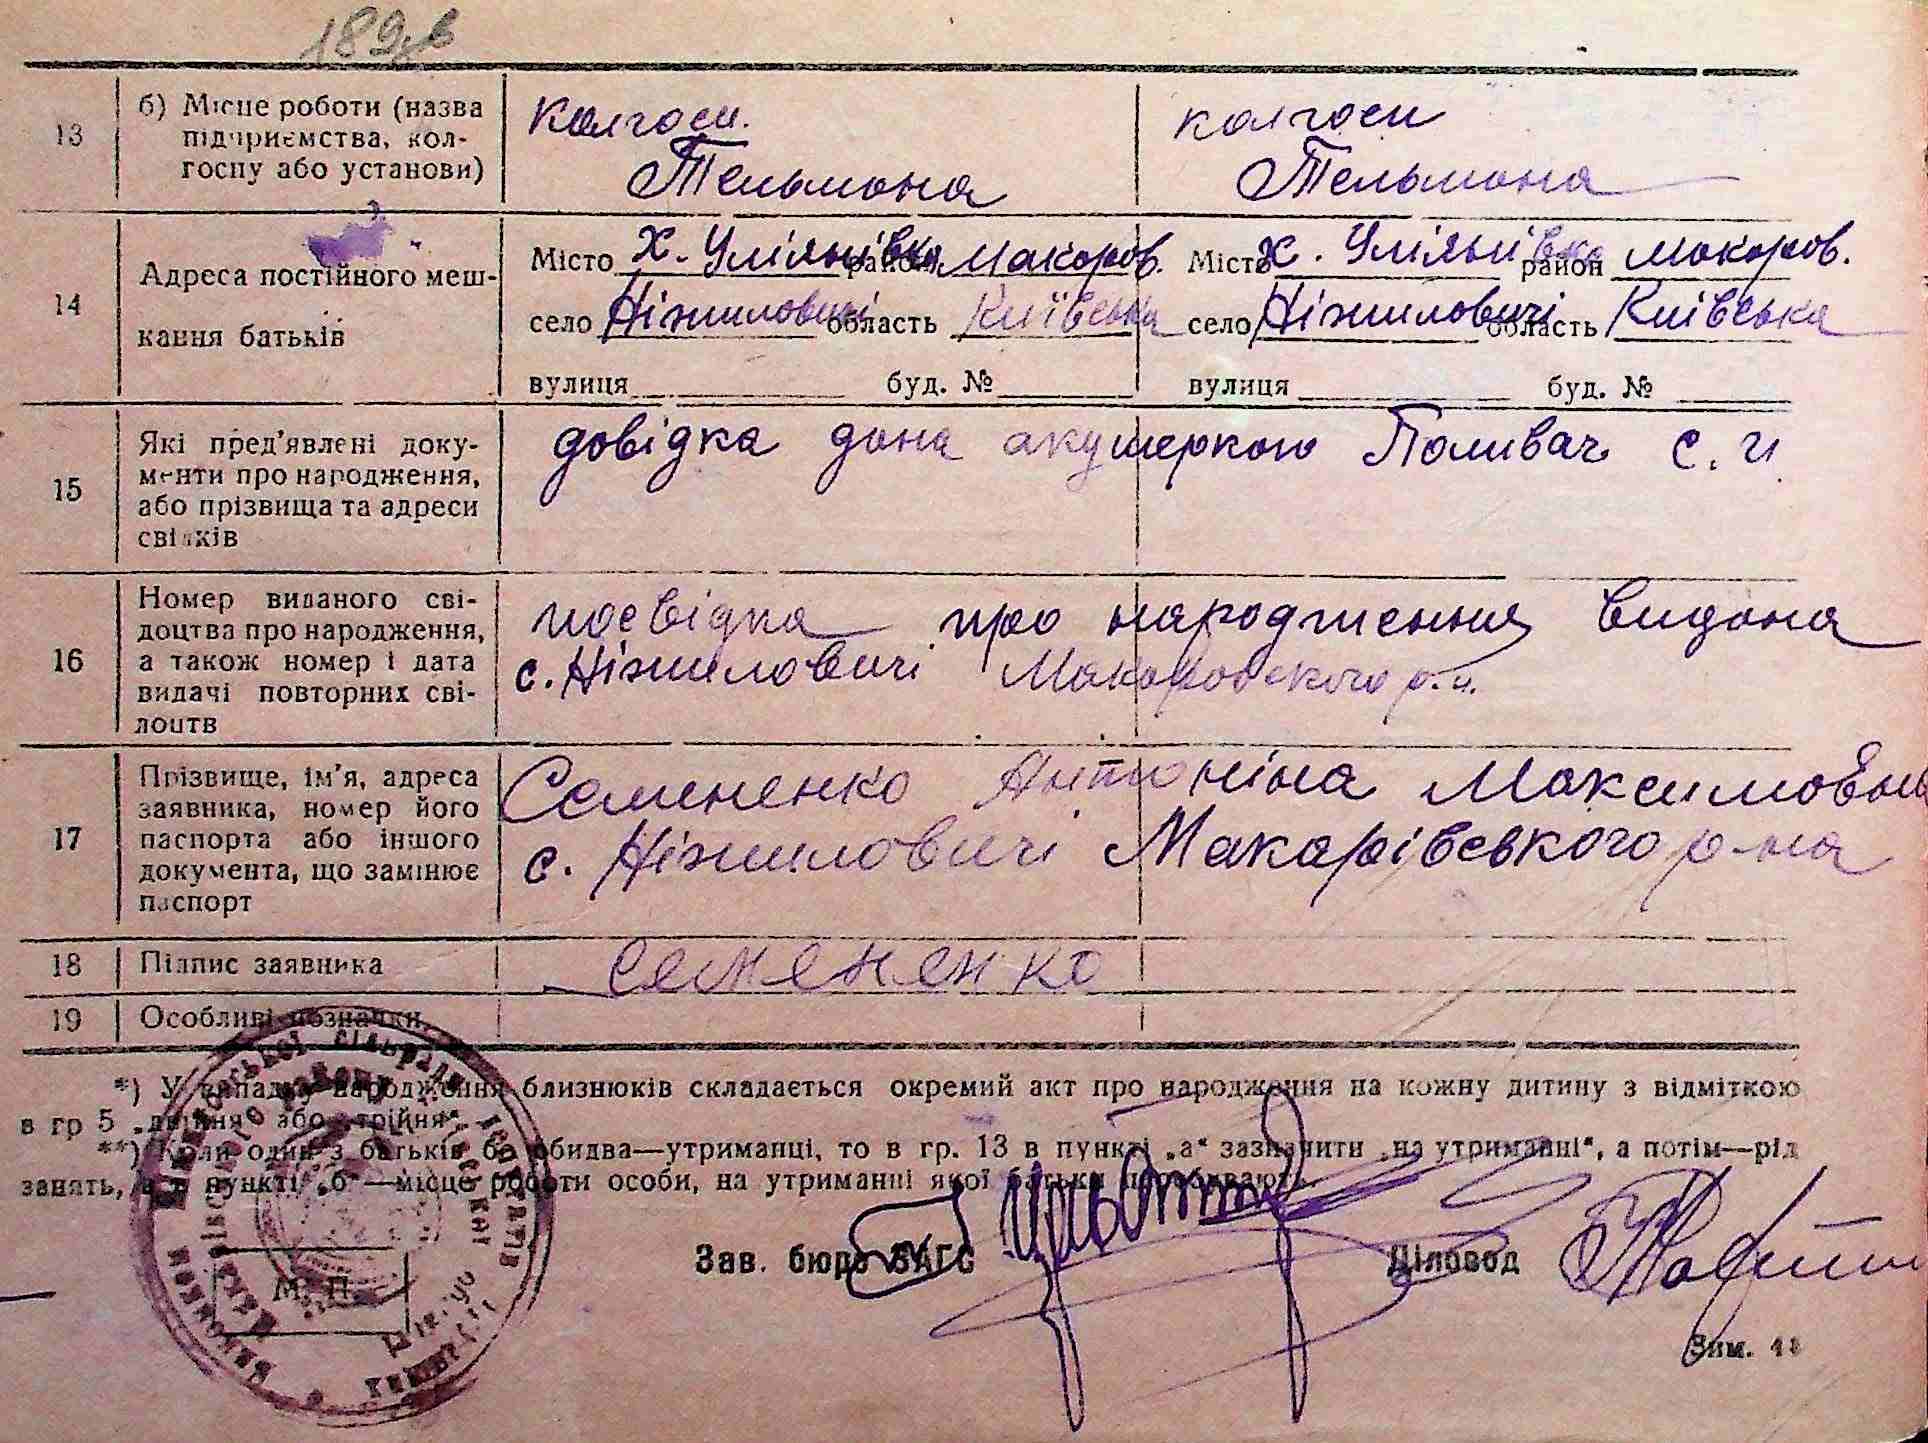 189 зв
13
б) Місце роботи (назва
підприємства, кол-
госпу або установи)
колгосп.
Тельмана
колгосп
Тельмана
14
Адреса постійного меш-
кання батьків
Місто х. Уліянівка район Макаров.
село Ніжиловичі область Київська
вулиця буд. №
Місто х. Уліянівка район Макаров.
село Ніжиловичі область Київська
вулиця буд. №
15
Які пред’явлені доку-
менти про народження,
або прізвища та адреси
свідків
довідка дана акушеркою Поливач С. И
16
Номер виданого сві-
доцтва про народження,
а також номер і дата
видачі повторних сві-
доцтв
посвідка про народження видана
с. Ніжиловичі Макаровского р.н.
17
Прізвище, ім’я, адреса
заявника, номер його
паспорта або іншого
документа, що замінює
паспорт
Семененко Антоніна Максимовна
с. Ніжиловичі Макарівського р-на
18
Підпис заявника
семененко
19
Особливі позначки
*) У випадку народження близнюків складається окремий акт про народження на кожну дитину з відміткою
в гр 5 „двійня або трійня“.
**) Коли один з батьків або обидва—утриманці, то в гр. 13 в пункті „а“ зазначити „на утриманні“, а потім—рід
занять, а в пункті „б“—місце роботи особи, на утриманні якої батьки перебувають.
Зав. бюро ЗАГС
Діловод
М. П.
Зим. 43